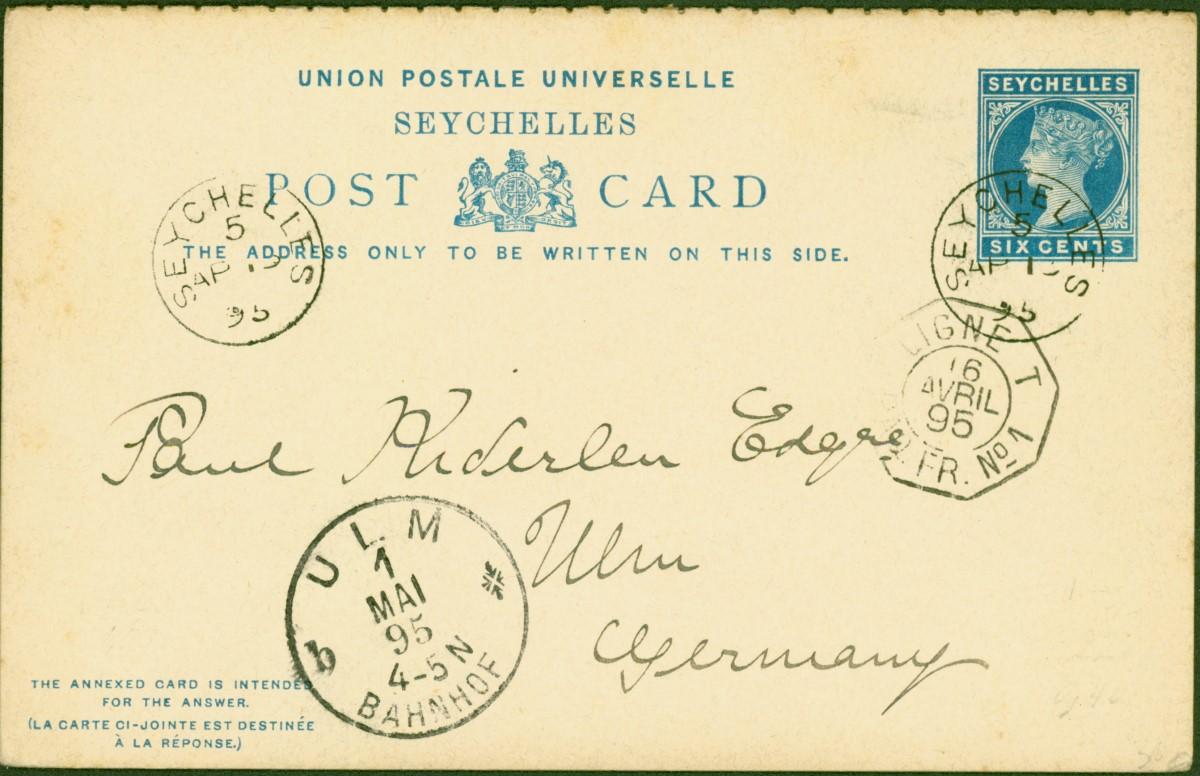 UNION POSTALE UNIVERSELLE
SEYCHELLES
POST CARD
THE ADDRESS ONLY TO BE WRITTEN ON THIS SIDE.
SEYCHELLES
SIX CENTS
SEYCHELLES
5
AP
95
SEYCHELLES
5
AP
95
LIGNE T
16
AVRIL
95
FR. No 1
Paul Kiderlen
Ulm
Germany
ULM
1
MAI
95
4-5 N
BAHNHOF
b
THE ANNEXED CARD IS INTENDED
FOR THE ANSWER.
(LA CARTE CI-JOINTE EST DESTINÉE
À LA RÉPONSE.)